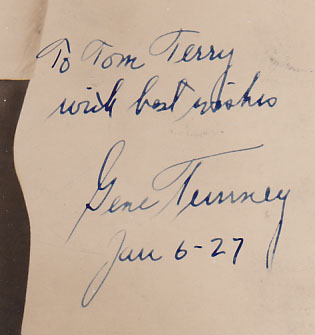 To Tom Terry
with best wishes
Gene Tunney
Jan 6-27